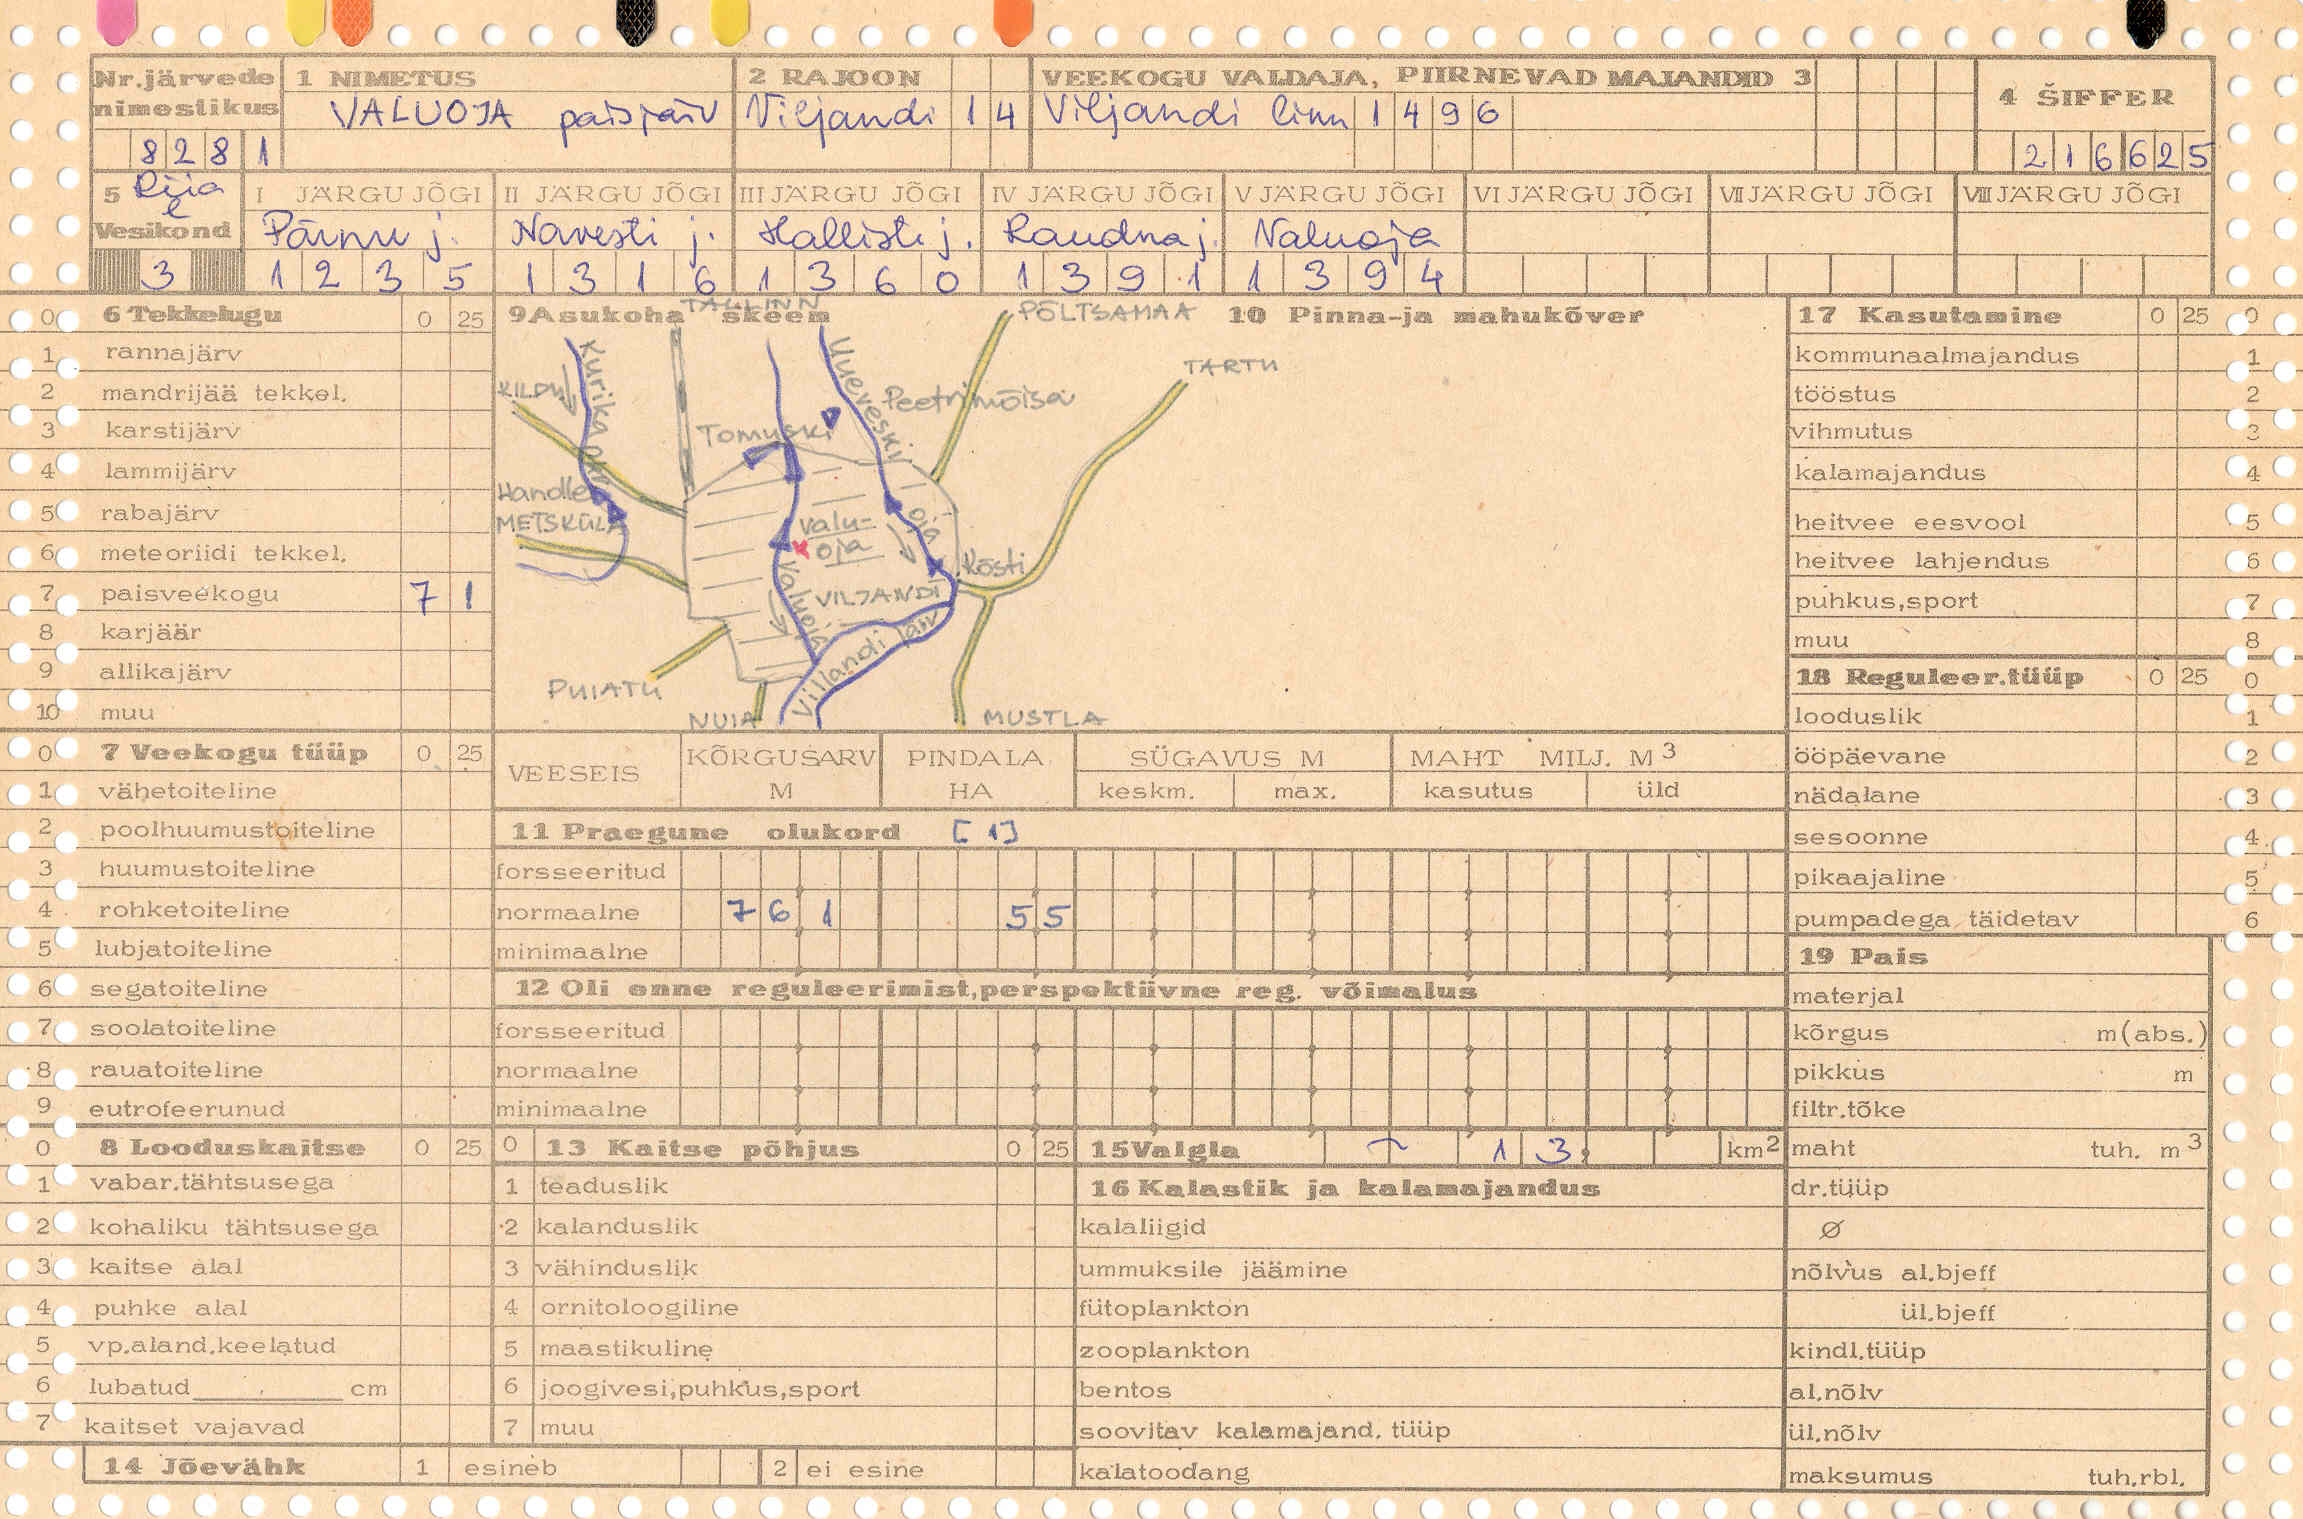 Nr.järvede nimestikus 1 NIMETUS 2 RAJOON VEEKOGU VALDAJA, PIIRNEVAD MAJANDID 3 4 ŠIFFER
VALUOJA paisjärv Viljandi 14 Viljandi linn 1496
828 1 216625
5 Riia l Vesikond I JÄRGU JÕGI II JÄRGU JÕGI III JÄRGU JÕGI IV JÄRGU JÕGI V JÄRGU JÕGI VI JÄRGU JÕGI VII JÄRGU JÕGI VIII JÄRGU JÕGI
Pärnu j. Navesti j. Hallisti j. Raudna j. Valuoja
3 1235 1316 1360 1391 1394
0 6 Tekkelugu 0 25
1 rannajärv
2 mandrijää tekkel.
3 karstijärv
4 lammijärv
5 rabajärv
6 meteoriidi tekkel.
7 paisveekogu 7 1
8 karjäär
9 allikajärv
10 muu
9 Asukoha skeem 10 Pinna-ja mahukõver
TALLINN
PÕLTSAMAA
TARTU
KILDU
Kurika oja
Uueveski oja
Peetrimõisa
Tomuski
Handle
METSKÜLA
valu-
oja
Kösti
Valuoja
VILJANDI
Viljandi järv
PUIATU
NUIA
MUSTLA
17 Kasutamine 0 25 0
kommunaalmajandus 1
tööstus 2
vihmutus 3
kalamajandus 4
heitvee eesvool 5
heitvee lahjendus 6
puhkus,sport 7
muu 8
18 Reguleer.tüüp 0 25 0
looduslik 1
ööpäevane 2
nädalane 3
sesoonne 4
pikaajaline 5
pumpadega täidetav 6
0 7 Veekogu tüüp 0 25
1 vähetoiteline
2 poolhuumustoiteline
3 huumustoiteline
4 rohketoiteline
5 lubjatoiteline
6 segatoiteline
7 soolatoiteline
8 rauatoiteline
9 eutrofeerunud
VEESEIS KÕRGUSARV M PINDALA HA SÜGAVUS M MAHT MILJ. M3
keskm. max. kasutus üld
11 Praegune olukord [1]
forsseeritud
normaalne 76 1 5 5
minimaalne
12 Oli enne reguleerimist,perspektiivne reg. võimalus
forsseeritud
normaalne
minimaalne
19 Pais
materjal
kõrgus m(abs.)
pikkus m
filtr.tõke
maht tuh. m3
dr.tüüp
Ø
nõlvus al.bjeff
ül.bjeff
kindl.tüüp
al.nõlv
ül.nõlv
maksumus tuh.rbl.
0 8 Looduskaitse 0 25
1 vabar.tähtsusega
2 kohaliku tähtsusega
3 kaitse alal
4 puhke alal
5 vp.aland.keelatud
6 lubatud cm
7 kaitset vajavad
0 13 Kaitse põhjus 0 25
1 teaduslik
2 kalanduslik
3 vähinduslik
4 ornitoloogiline
5 maastikuline
6 joogivesi,puhkus,sport
7 muu
15 Valgla ~ 13, km2
16 Kalastik ja kalamajandus
kalaliigid
ummuksile jäämine
fütoplankton
zooplankton
bentos
soovitav kalamajand. tüüp
kalatoodang
14 Jõevähk 1 esineb 2 ei esine